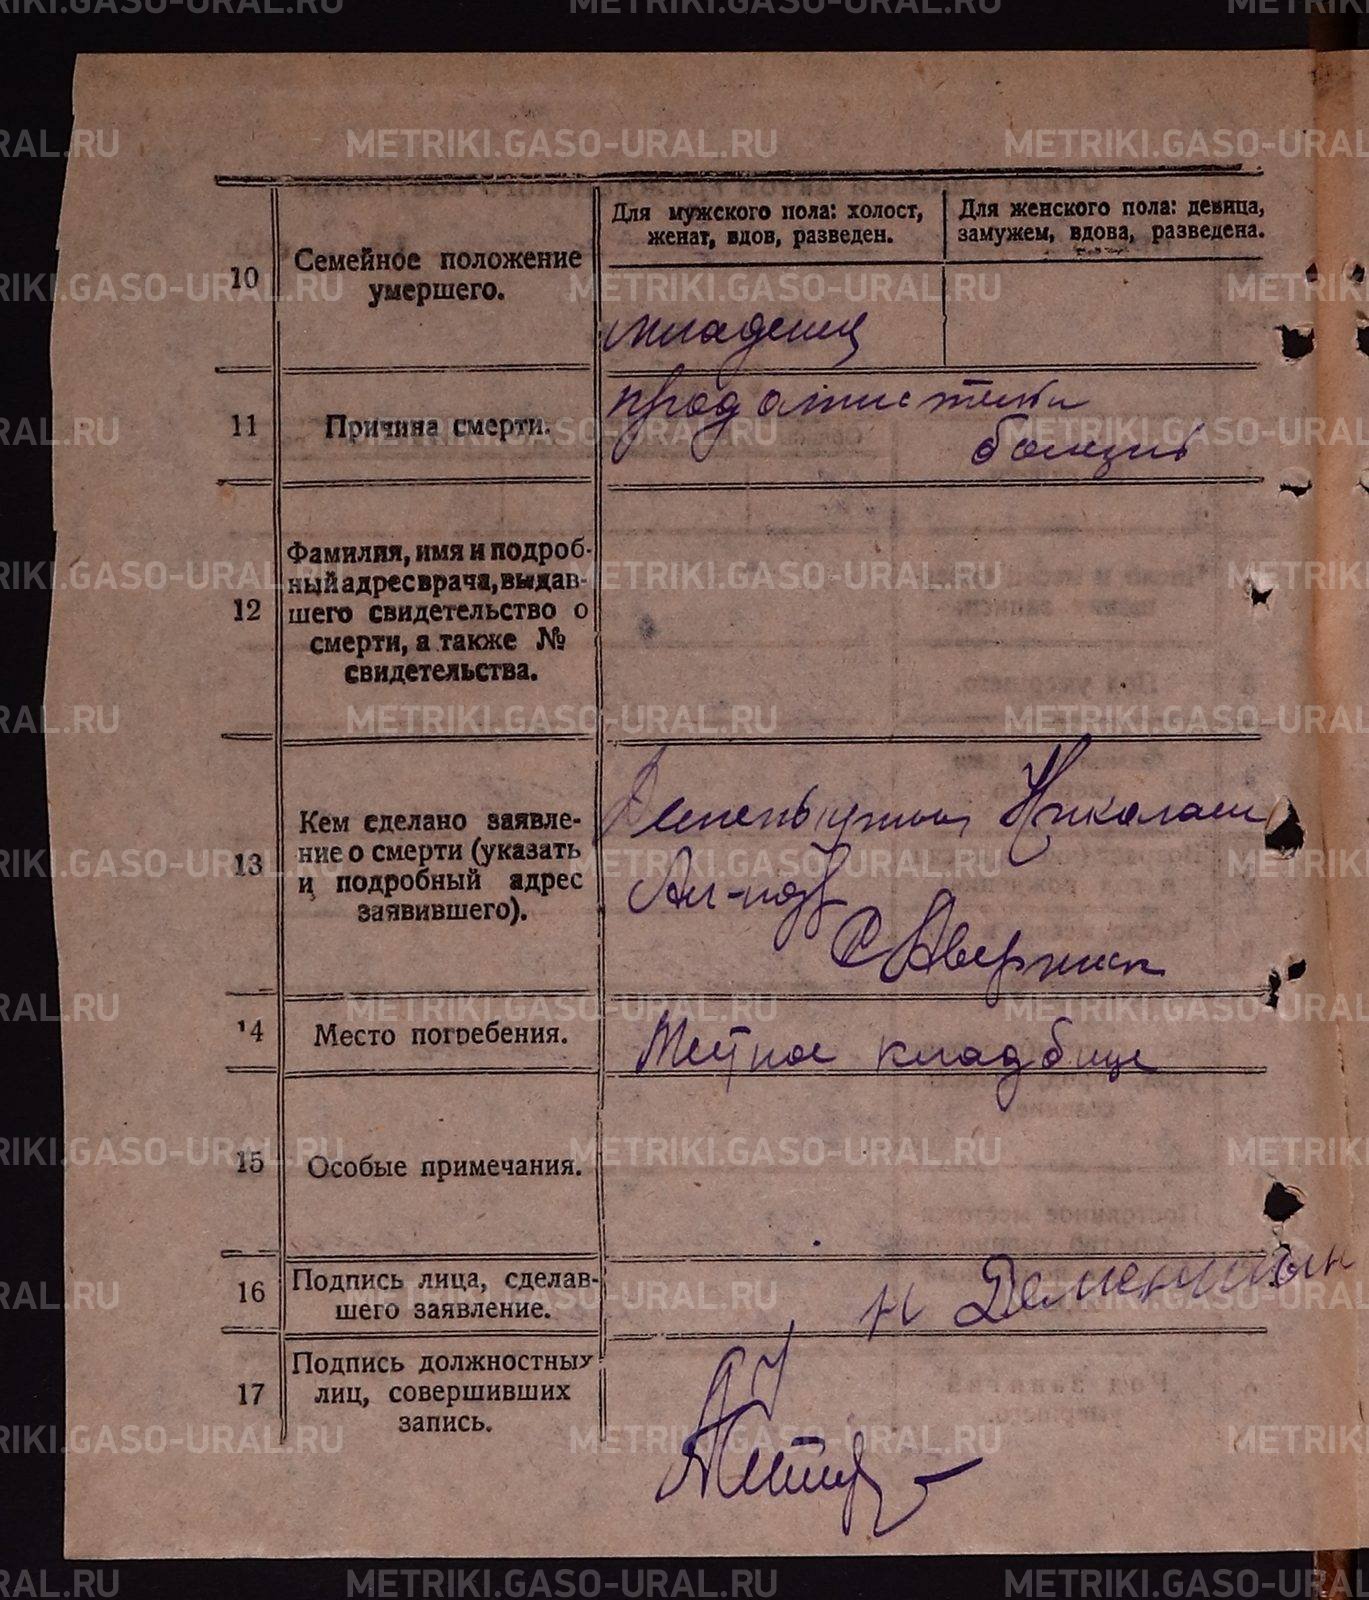 Для мужского пола: холост,
женат, вдов, разведен.
Для женского пола: девица,
замужем, вдова, разведена.
10
Семейное положение
умершего.
младенец
11
Причина смерти.
продолжительн
болезнь
12
Фамилия, имя и подроб-
ный адрес врача, выдав-
шего свидетельство о
смерти, а также №
свидетельства.
13
Кем сделано заявле-
ние о смерти (указать
и подробный адрес
заявившего).
Николаем
14
Место погребения.
Местное кладбище
15
Особые примечания.
16
Подпись лица, сделав-
шего заявление.
Н Деменьшын
17
Подпись должностных
лиц, совершивших
запись.
METRIKI.GASO-URAL.RU